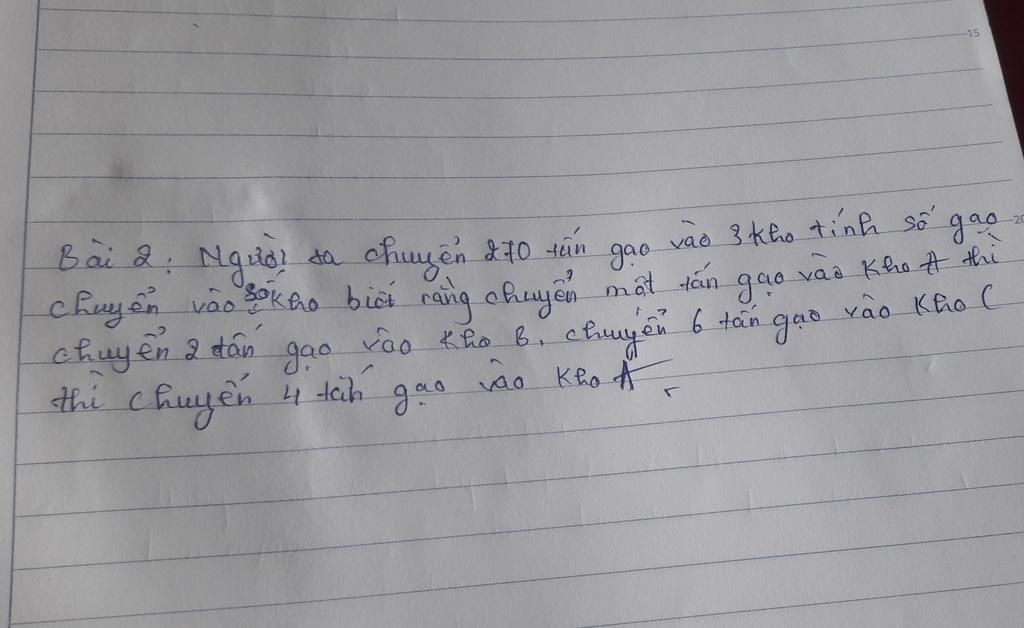 15
Bài 2: Người ta chuyển 270 tấn gạo vào 3 kho tính số gạo 20
chuyển vào số kho biết rằng chuyển một tấn gạo vào kho A thì
chuyển 2 tấn gạo vào kho B, chuyển 6 tấn gạo vào kho C
thì chuyển 4 tấn gạo vào kho A